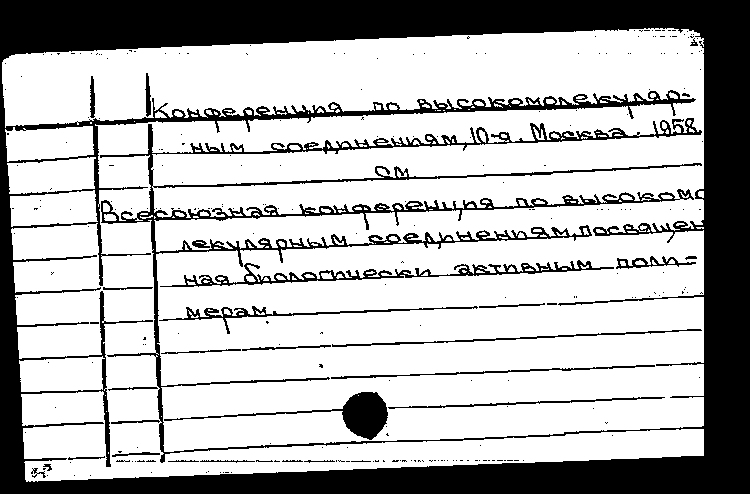 Конференция по высокомолекуляр-
ным соединениям, 10-я. Москва. 1958.
см
Всесоюзная конференция по высокомо
лекулярным соединениям, посвящен
ная биологически активным поли=
мерам.